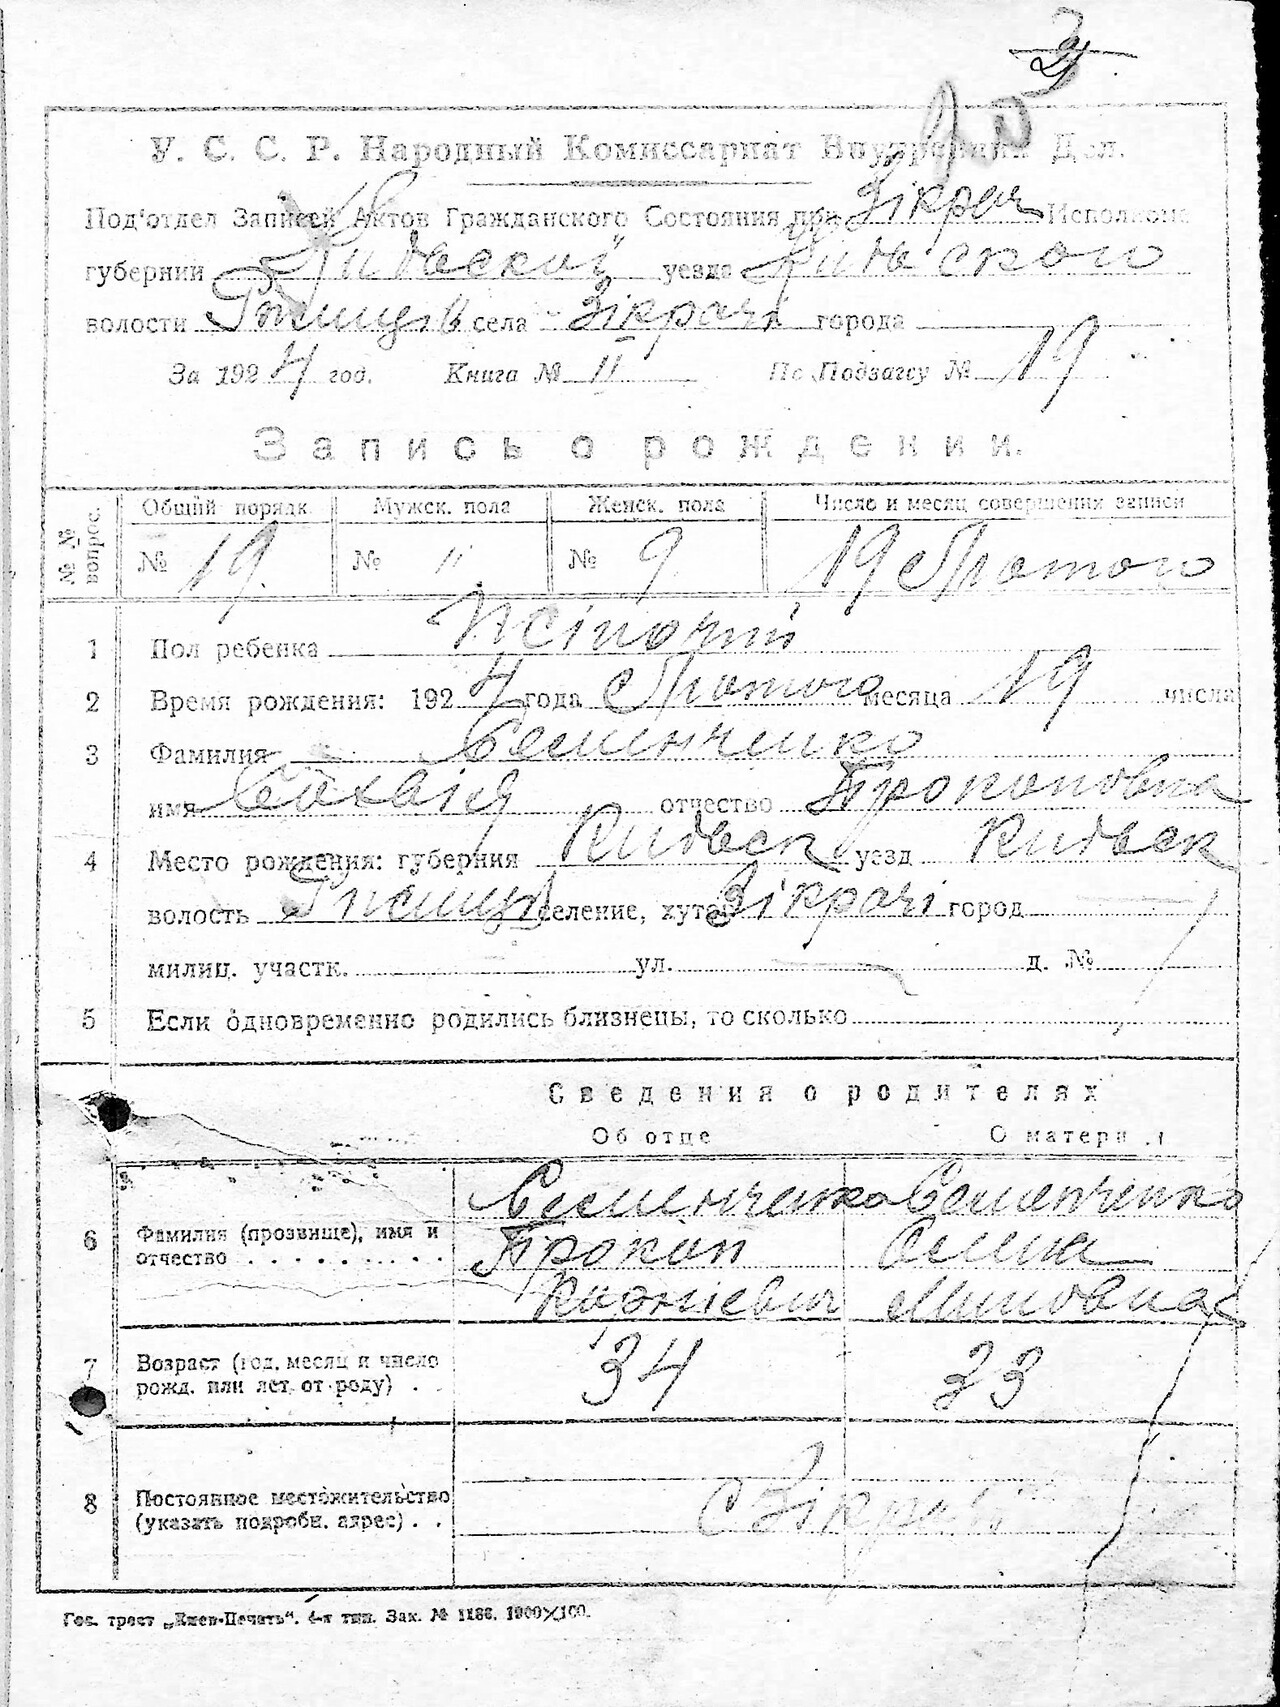 3
У. С. С. Р. Народный Комиссариат Внутренних Дел.
Под'отдел Записей Актов Гражданского Состояния при Зікрач Исполкоме
губернии Київской уезда Київской
волости села Зікрачі города
За 1924 год. Книга № 11 По Подзагсу № 19
Запись о рождении.
№№ вопрос. Общий порядк. Мужск. пола Женск. пола Число и месяц совершения записи
№ 19. № 11 № 9 19 Лютого
1 Пол ребенка жіночий
2 Время рождения: 1924 года Лютого месяца 19 числа
3 Фамилия Семенченко
имя отчество Прокоповна
4 Место рождения: губерния Київск уезд Київск
волость селение, хутор Зікрачі город
милиц. участк. ул. д. №
5 Если одновременно родились близнецы, то сколько
Сведения о родителях
Об отце О матери
6 Фамилия (прозвище), имя и отчество Семенченко Прокоп Семенченко
7 Возраст (год, месяц и число рожд. или лет от роду) 34 33
8 Постоянное местожительство (указать подробн. адрес) с Зікрачі
Гос. трест „Киев-Печать“. 4-я тип. Зак. № 1186. 1000×100.